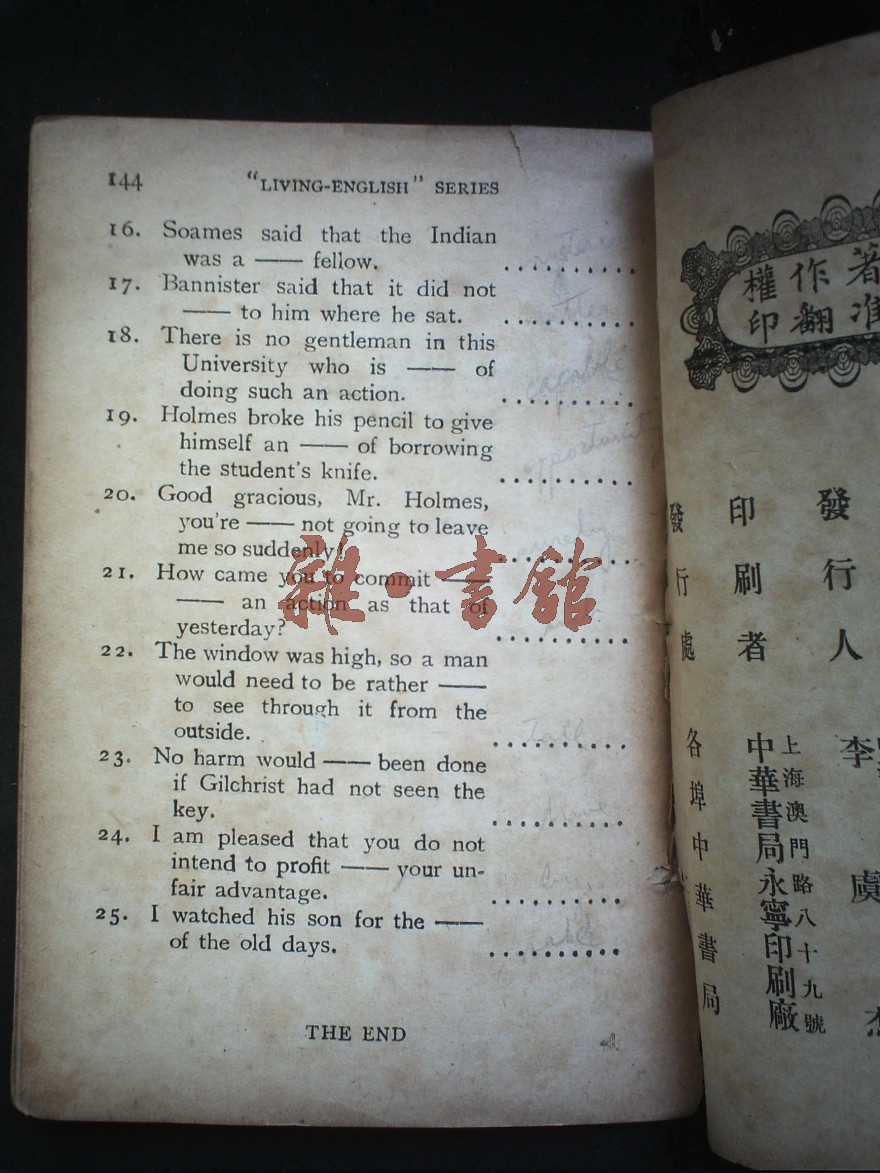 144 "LIVING-ENGLISH" SERIES
16. Soames said that the Indian
was a —— fellow. ..........
17. Bannister said that it did not
—— to him where he sat. ..........
18. There is no gentleman in this
University who is —— of
doing such an action. capable ..........
19. Holmes broke his pencil to give
himself an —— of borrowing opportunity
the student's knife. ..........
20. Good gracious, Mr. Holmes,
you're —— not going to leave
me so suddenly! ..........
21. How came you to commit ——
—— an action as that of
yesterday? ..........
22. The window was high, so a man
would need to be rather ——
to see through it from the
outside. tall ..........
23. No harm would —— been done
if Gilchrist had not seen the
key. have ..........
24. I am pleased that you do not
intend to profit —— your un-
fair advantage. by ..........
25. I watched his son for the ——
of the old days. sake ..........
THE END
雜·書館
著作權
准翻印
發行人
李虞杰
印刷者
上海澳門路八十九號
中華書局永寧印刷廠
發行處
各埠中華書局